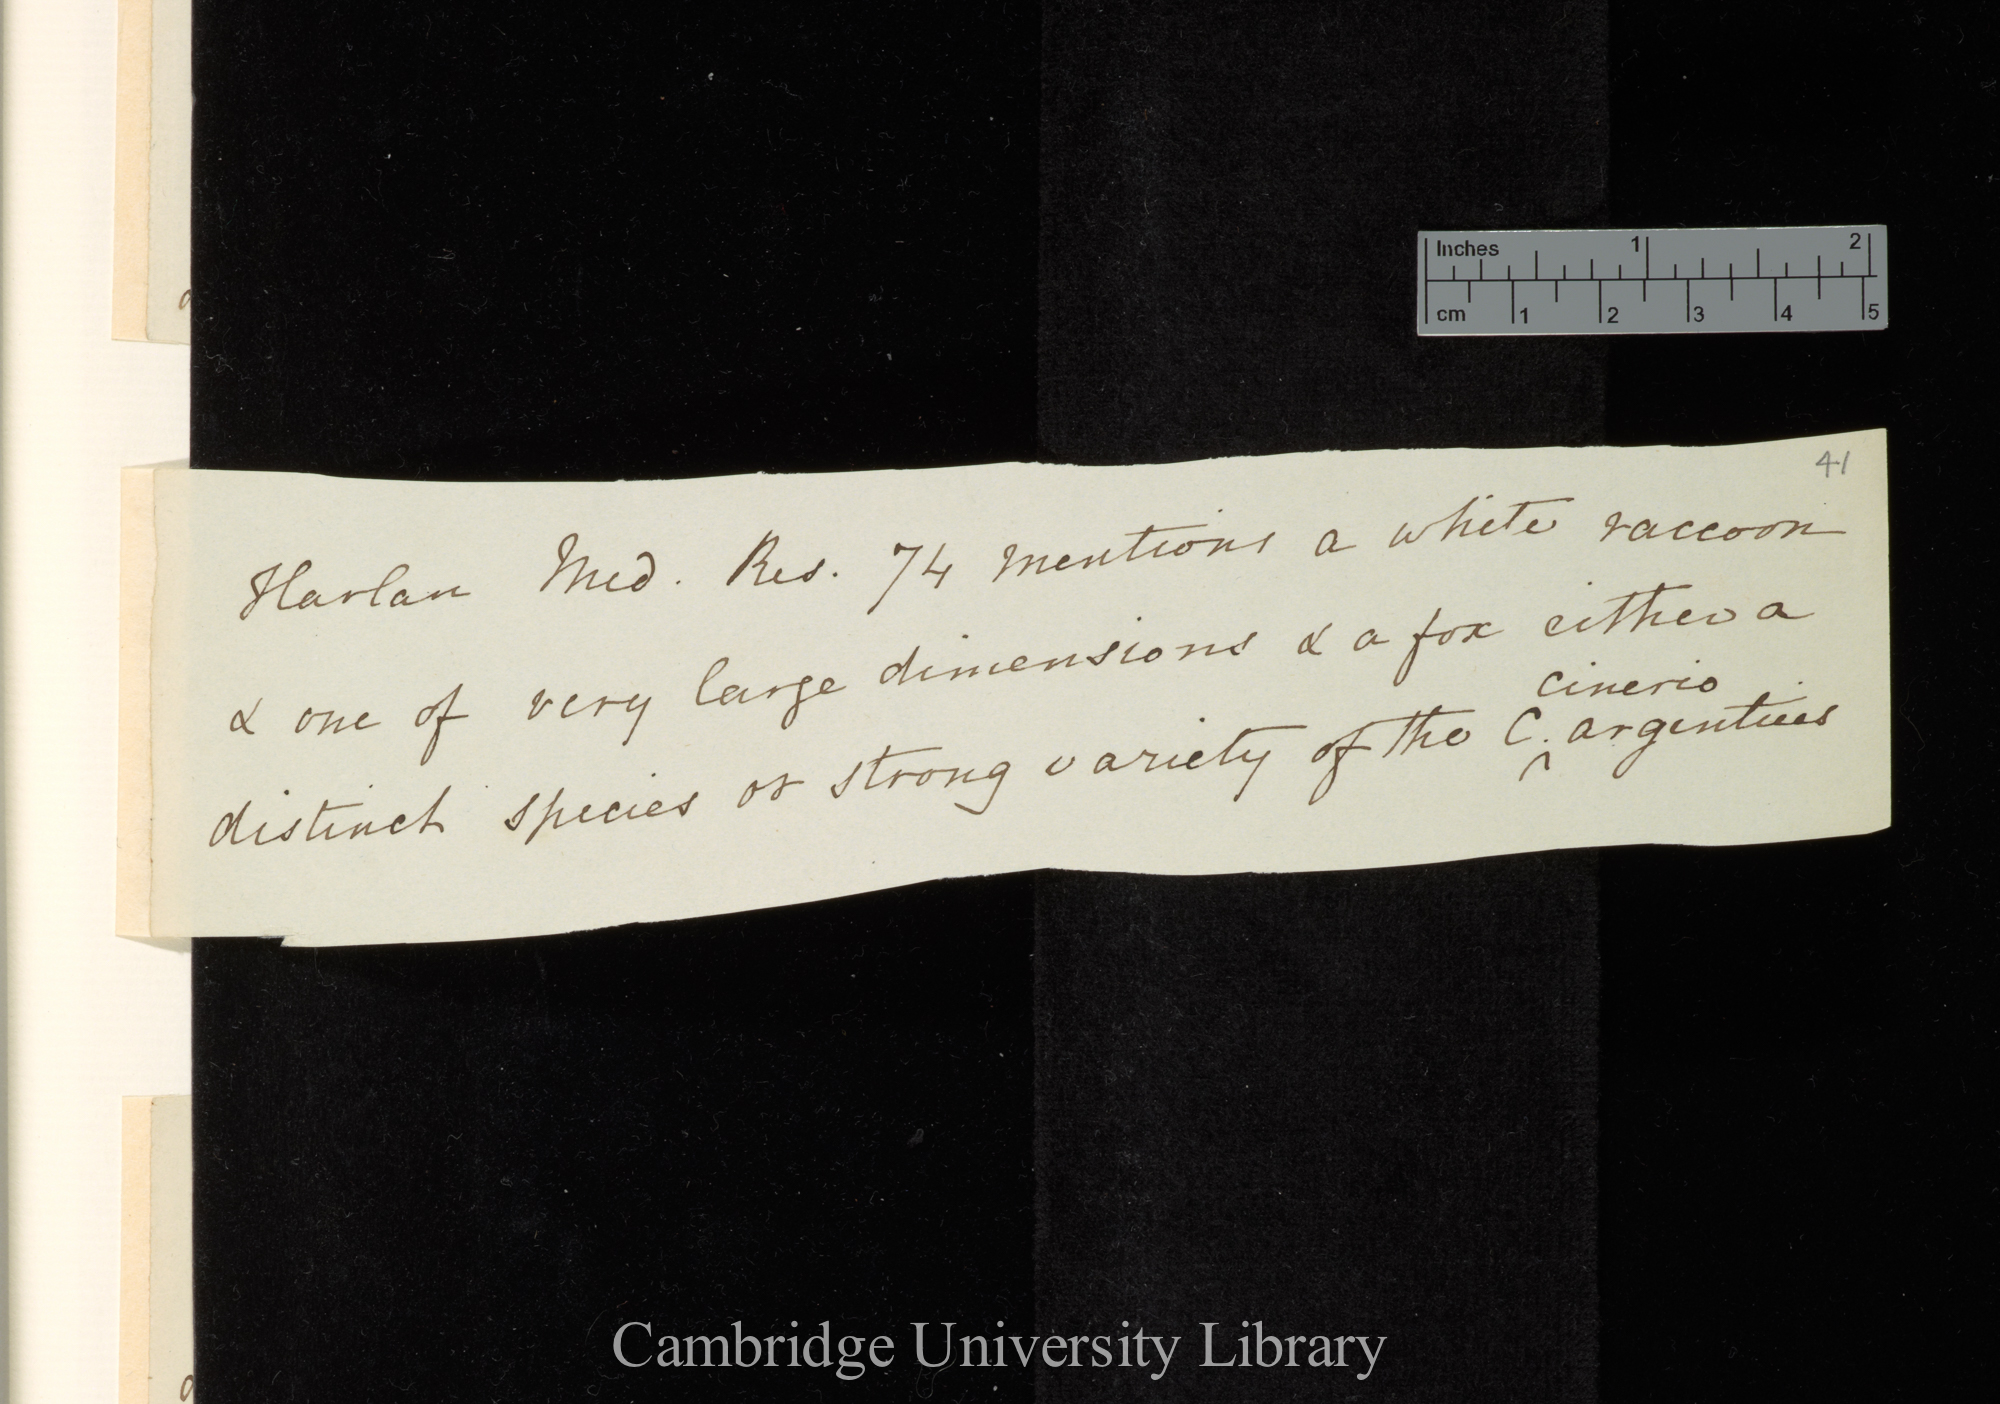 Inches 1 2
cm 1 2 3 4 5
41
Harlan Med. Res. 74 mentions a white raccoon
& one of very large dimensions & a fox either a
cinerio
distinct species or strong variety of the C. argentius
Cambridge University Library